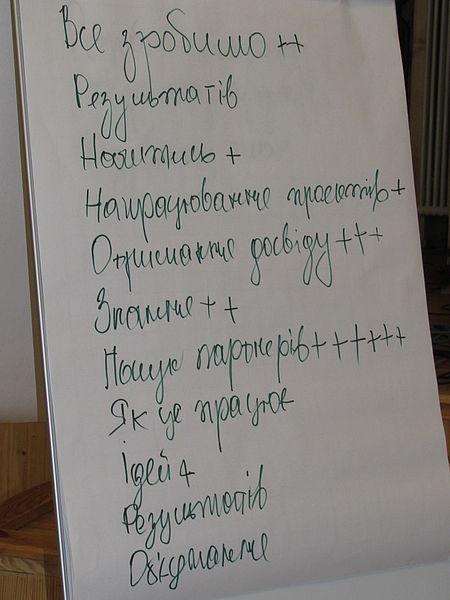 Все зробимо ++
Результатів
Навчитись +
Напрацювання проектів +
Отримання досвіду +++
Знання ++
Пошук партнерів ++++++
Як це працює
Ідей +
Результатів